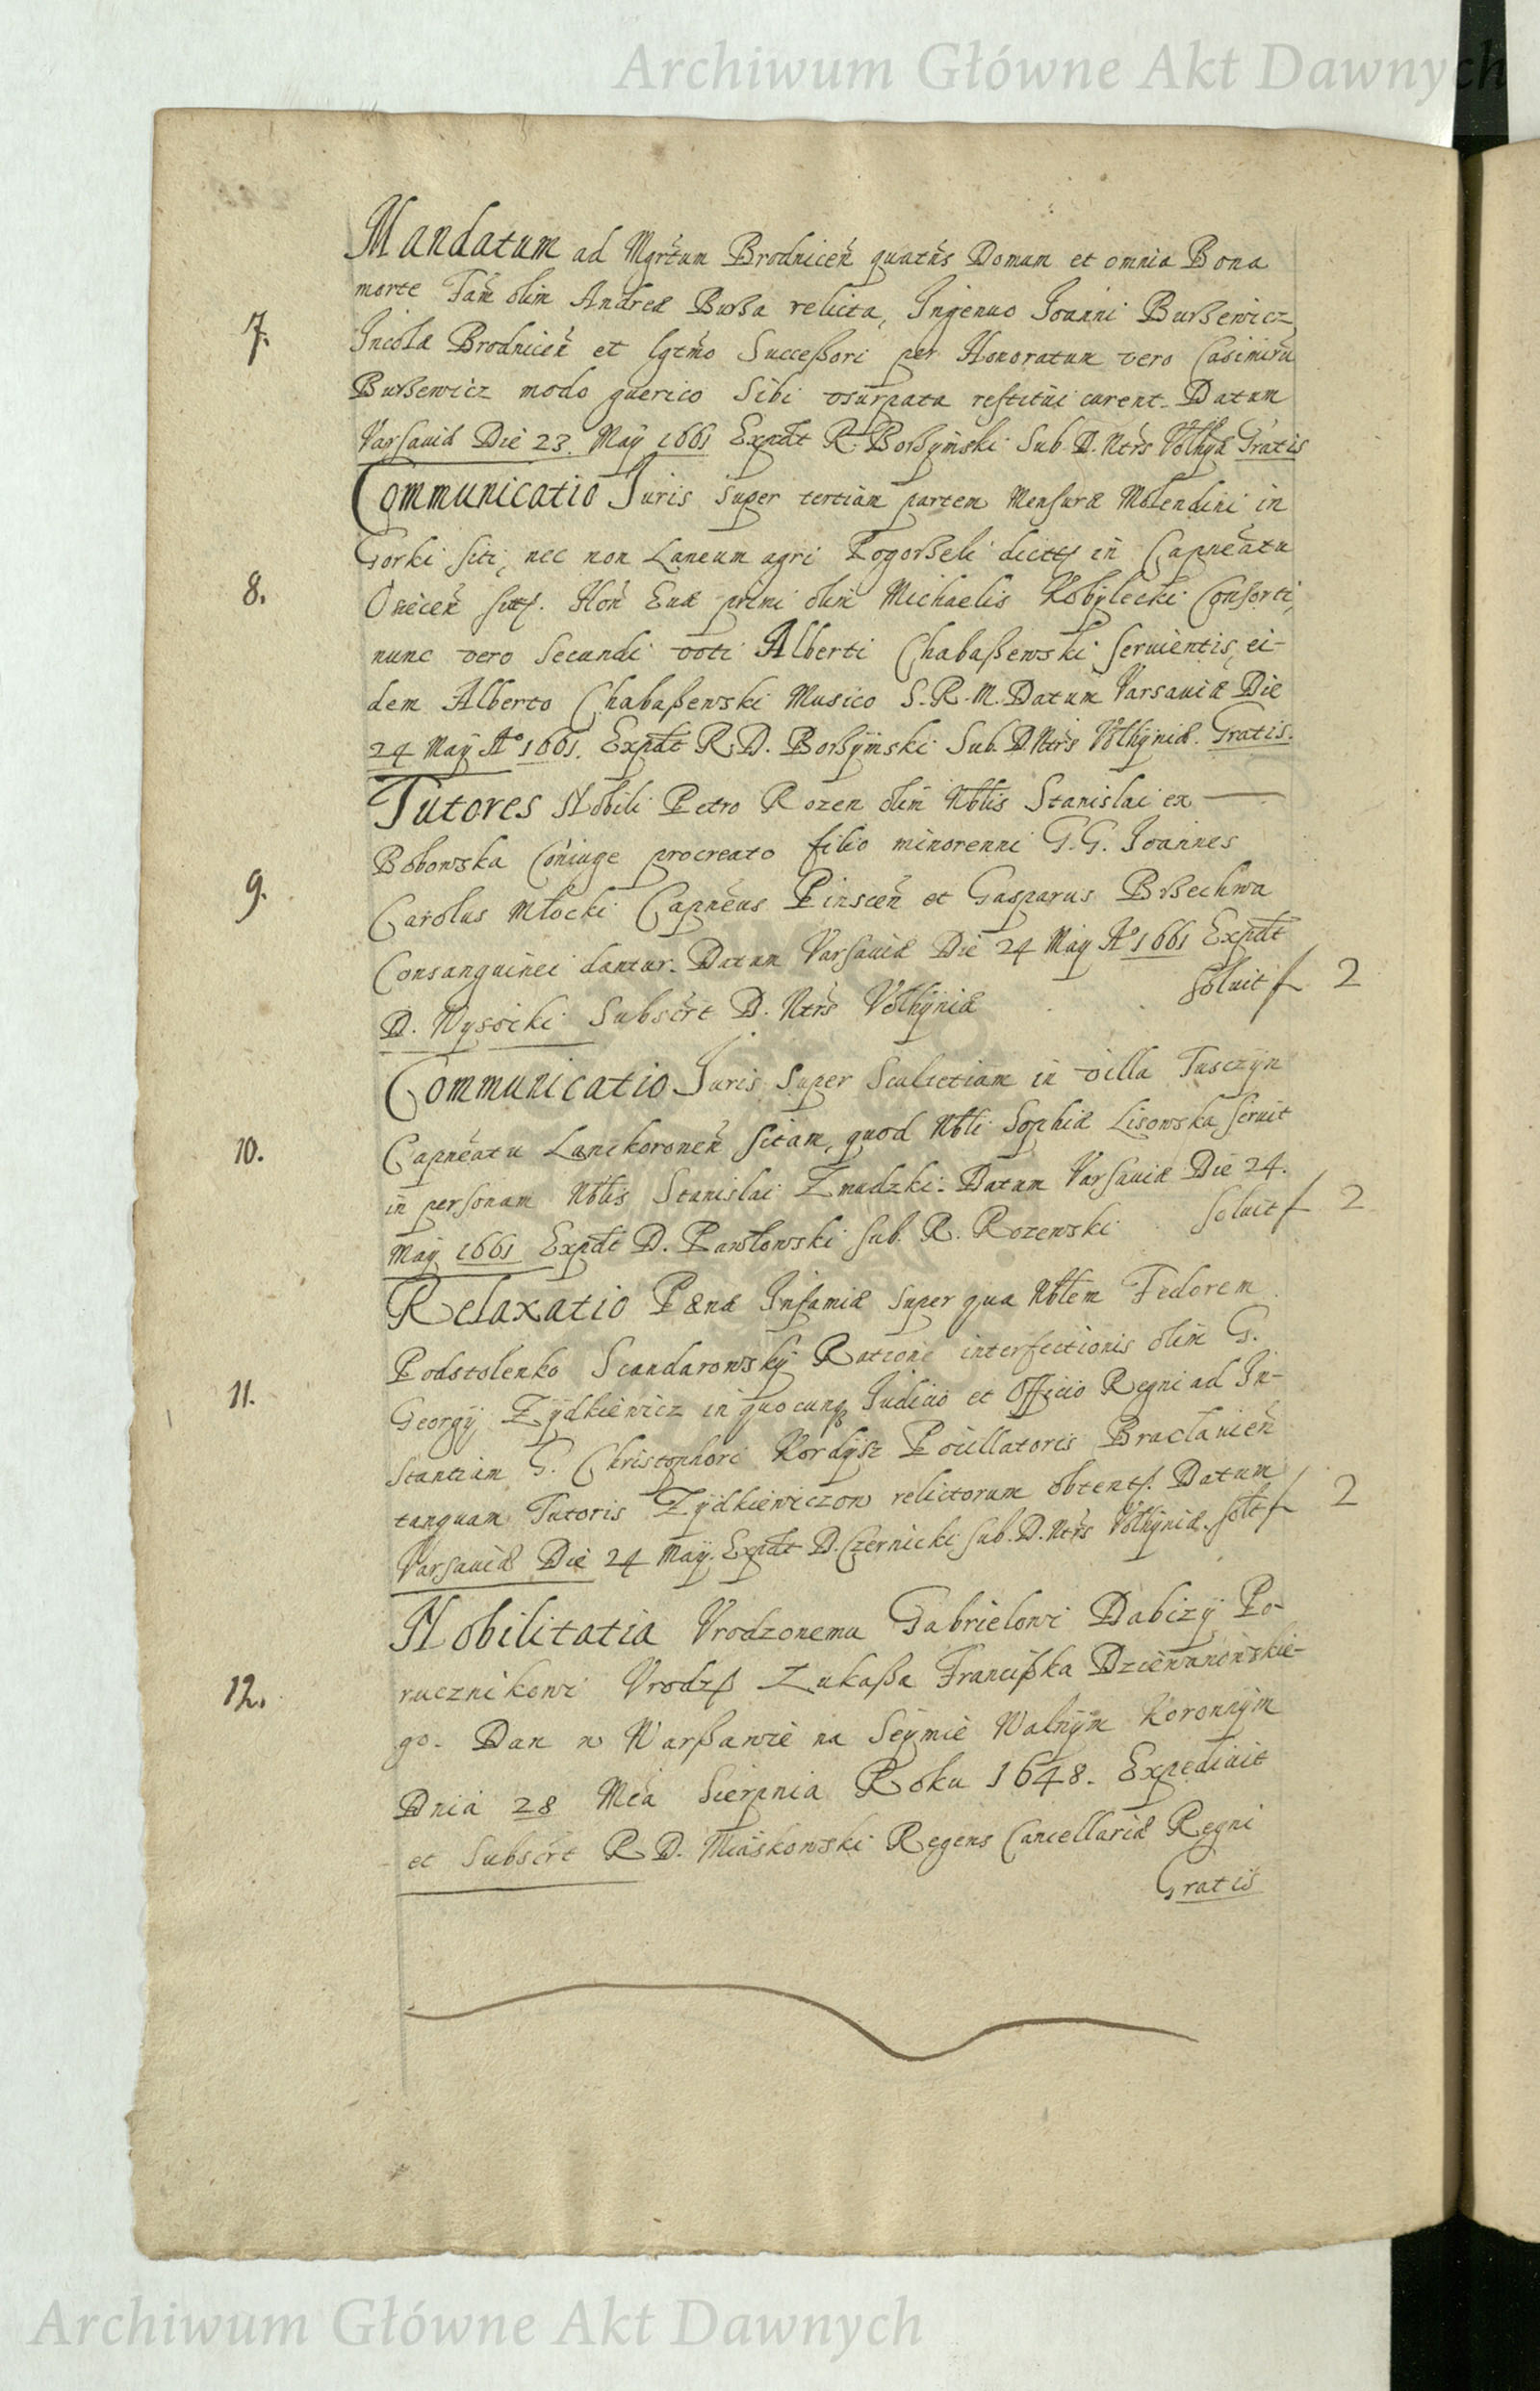 Archiwum Główne Akt Dawnych
Mandatum ad Mgrtum Brodniceñ quatñs Domum et omnia Bona
morte Fañ olim Andreæ Bußa relicta, Ingenuo Joanni Bußewicz
7. Incolæ Brodniceñ et lgtmo Successori per Honoratum vero Casimirũ
Bußewicz modo querico sibi vsurpata restitui curent. Datum
Varsaviæ Die 23. Maÿ 1661 Expdt R. Borßyński Sub D. Ntrs Volhyæ Gratis
Communicatio Juris super tertiam partem Mensuræ Molendini in
Gorki siti, nec non Laneum agri Pogorßeli dict in Capneatu
8. siti. Hoñ Euæ primi olim Michaelis Kobylecki Consorti,
nunc vero Secundi voti Alberti Chabaßewski seruientis, ei-
dem Alberto Chabaßewski Musico S. R. M. Datum Varsauiæ Die
24 Maÿ Aº 1661. Expdt R. D. Borßyński Sub. D Ntrs Volhÿniæ. Gratis.
Tutores Nobili Petro Rozen olim Nblis Stanislai ex
Bobowska Coniuge procreato filio minorenni G. G. Joannes
9. Carolus Młocki Capneus Pinsceñ et Gasparus Brßechwa
Consanguinei dantur. Datum Varsauiæ Die 24 Maÿ Aº 1661 Expdt
D. Wysocki Subscrt D. Ntrs Volhÿniæ soluit f 2
Communicatio Juris super Scultetiam in villa Tusczÿn
10. Capneatu Lanckoroneñ sitam, quod Nbli Sophiæ Lisowska seruit
in personam Nblis Stanislai Zmudzki. Datum Varsauiæ Die 24.
Maÿ 1661 Expdt D. Pawłowski sub. R. Rozewski soluit f 2
Relaxatio Pænæ Infamiæ super qua Nblem Fedorem
Podstolenko Scandarowskÿ Ratione interfectionis olim G.
11. Georgÿ Zÿdkiewicz in quocunq Judicio et Officio Regni ad In-
stantiam G. Christophori Kordÿsz Pocillatoris Bracłauieñ
tanquam Tutoris Zÿdkiewiczow relictorum obtent. Datum
Varsauiæ Die 24 Maÿ. Expdt D. Czernicki sub. D. Ntrs Volhÿniæ. solt f 2
Nobilitatia Vrodzonemu Gabrielowi Dabizÿ Po-
12. rucznikowi Vrodzß Łukaßa Francißka Dziewanowskie-
go. Dan w Warßawie na Seÿmie Walnÿm Koronnÿm
Dnia 28 Mca Sierpnia Roku 1648. Expediuit
et Subscrt R D. Miaskowski Regens Cancellariæ Regni
Gratis
Archiwum Główne Akt Dawnych